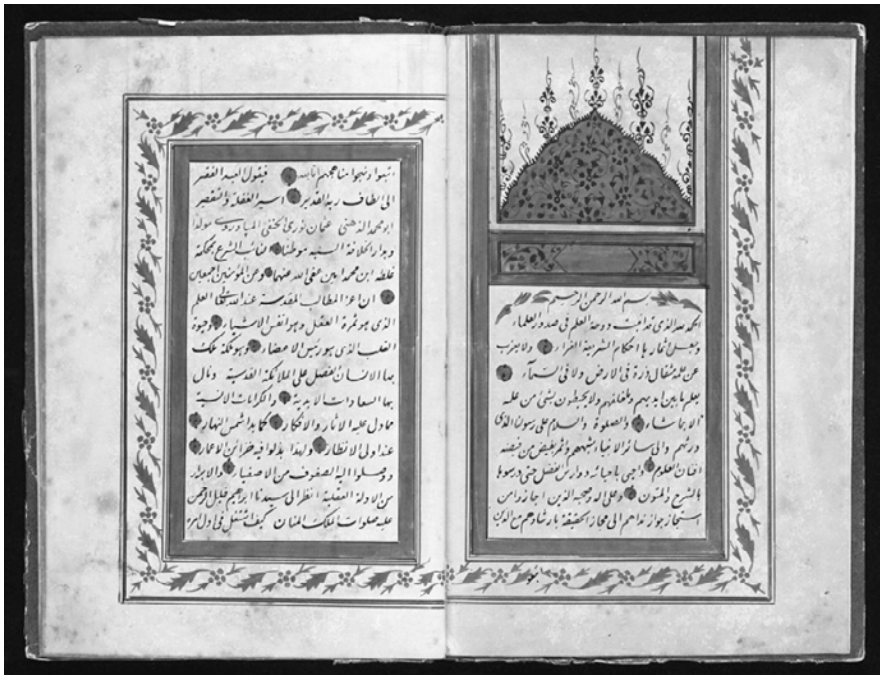 بسم الله الرحمن الرحيم
الحمد لله الذى قد انبت دوحة العلم فى صدور العلماء
وجعل اثمارها احكام الشريعة الغراء ولا يعزب
عن علمه مثقال ذرة فى الارض ولا فى السمآء
يعلم ما بين ايديهم وما خلفهم ولا يحيطون بشئ من علمه
الا بما شاء والصلوة والسلام على رسولنا الذى
ورثهم والى سائر الانبياء شبههم واثمر بفيض من فيضه
افنان العلوم واحيى باحيائه دوارس الفضل حتى درسوها
بالشرع والمتون وعلى اله وصحبه الذين اجازوا من
استجاز جواز نداهم الى مجاز الحقيقة بارشادهم مع الذين
اتبعوا ونهجوا مناهجهم فيقول العبد الفقير
الى الطاف ربه القدير اسير الغفلة والتقصير
ابو محمد الذهنى عثمان نورى الحنفى مولدا
وبدار الخلافة السنيه موطنا النائب الشرع بمحكمة
غلطه ابن محمد امين عفى الله عنهما وعن المؤمنين اجمعين
ان اعز المطالب المقدسة عند الله تعالى العلم
الذى هو ثمرة العقل وهو انفس الاشياء وحيوة
القلب الذى هو رئيس الاعضاء وهو نكتة ملك
بها الانسان تفضل على الملائكة القدسية ونال
بها السعادات الابدية والكرامات الانسية
مما دل عليه الاثار والافكار كما بدا شمس النهار
عند اولى الانظار ولهذا بذلوا فيه خزائن الاعمار
ووصلوا اليه الصفوف من الاصفياء والابرار
من الادلة العقلية انظر الى سيدنا ابراهيم خليل الرحمن
عليه صلوات الملك المنان كيف اشتغل فى اول امره